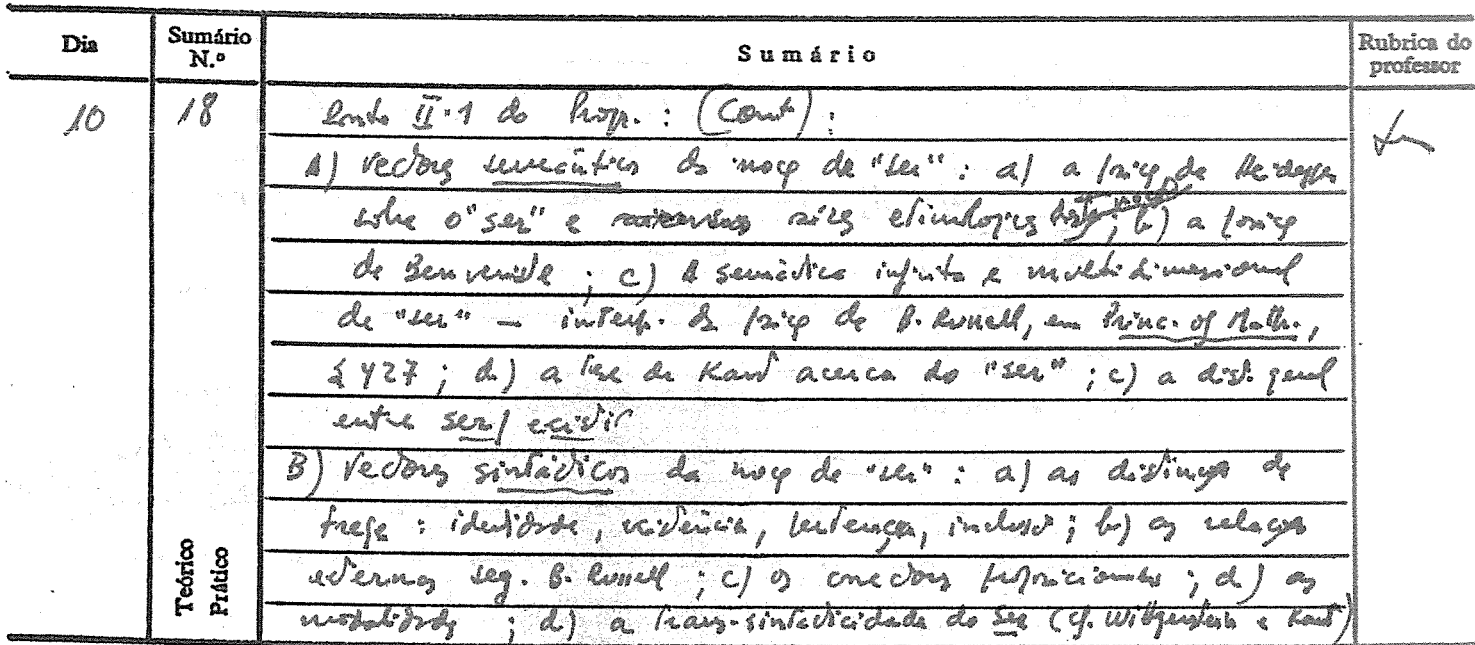 Dia
Sumário N.º
Sumário
Rubrica do professor
10
18
Ponto II.1 do Progr. : (Cont) :
A) Vectores semânticos da noção de "ser" : a) a posição de Heidegger
sobre o "ser" e raízes etimológicas ; b) a posição
de Benveniste ; c) A semântica infinita e multidimensional
de "ser" – interp. da posição de B. Russell, em Princ. of Math.,
§ 427 ; d) a tese de Kant acerca do "ser" ; c) a dist. geral
entre ser / existir
B) Vectores sintácticos da noção de "ser" : a) as distinções de
Frege : identidade, existência, pertença, inclusão ; b) as relações
externas seg. B. Russell ; c) os conectores proposicionais ; d) as
modalidades ; d) a trans-sintacticidade do Ser (cf. Wittgenstein e Kant)
Teórico
Prático